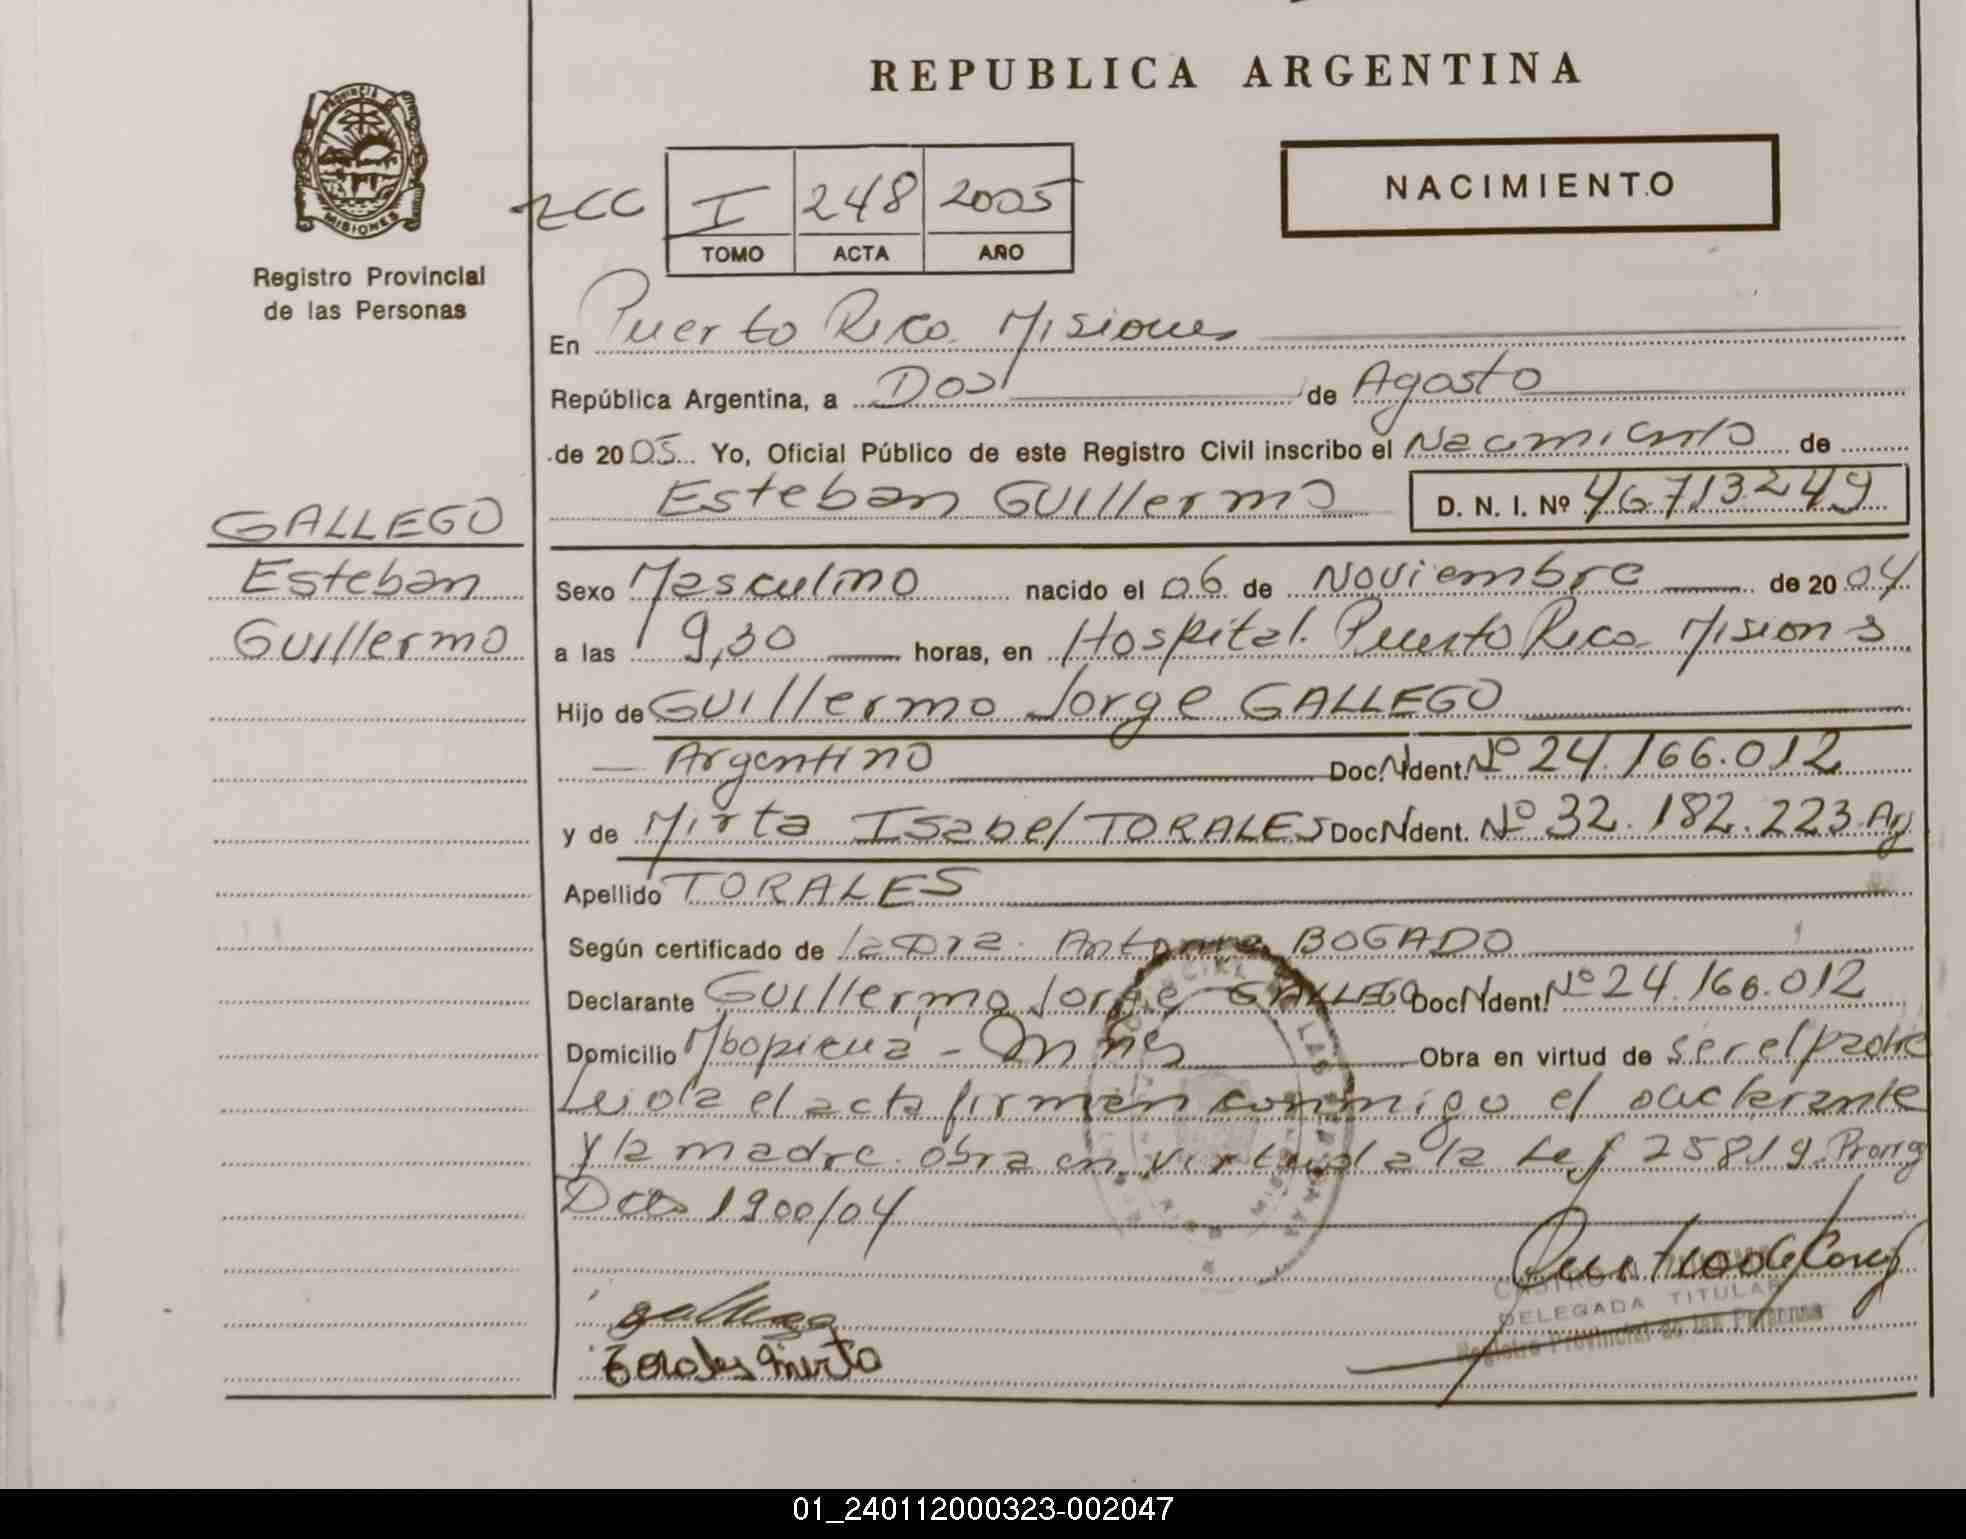 REPUBLICA ARGENTINA
PROVINCIA DE
MISIONES
Registro Provincial
de las Personas
NACIMIENTO
I 248 2005
TOMO ACTA AÑO
En Puerto Rico Misiones
República Argentina, a Dos de Agosto
de 2005 Yo, Oficial Público de este Registro Civil inscribo el Nacimiento de
Esteban Guillermo D. N. I. Nº 46713249
GALLEGO
Esteban
Guillermo
Sexo Masculino nacido el 06 de Noviembre de 2004
a las 9,30 horas, en Hospital Puerto Rico Misions
Hijo de Guillermo Jorge GALLEGO
Argentino Doc. Ident. Nº 24.166.012
y de Mirta Isabel TORALES Doc. Ident. Nº 32.182.223 Arg
Apellido TORALES
Según certificado de la Dra. Antonia BOGADO
Declarante Guillermo Jorge GALLEGO Doc. Ident. Nº 24.166.012
Domicilio Mbopicuá - Mnes Obra en virtud de ser el padre
Leida el acta firman conmigo el declarante
y la madre. obra en virtud a la Ley 25819. Prorrg
Dcto 1900/04
Torales Mirta
DELEGADA TITULAR
Registro Provincial de las Personas
01_240112000323-002047